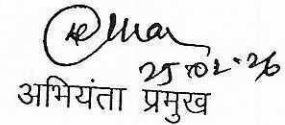 25.02.26
अभियंता प्रमुख